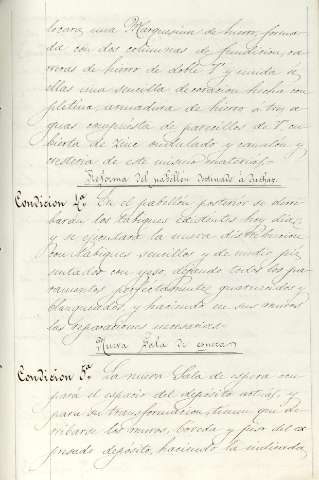 locara, una Marquesina de hierro, forma-
da con dos columnas de fundicion, ca-
rreras de hierro de doble T y unida á
ellas una sencilla decoracion hecha con
pletina, armadura de hierro á tres a-
guas compuesta de parecillos de T cu-
bierta de zinc ondulado y canalon y
cresteria de este mismo material.-
Reforma del pabellón destinado á fechar.
Condicion 4ª En el pabellón posterior se derri-
barán los tabiques existentes hoy dia,
y se ejecutará la nueva distribucion
con tabiques sencillos y de medio pie,
sentados con yeso, dejando todos los pa-
ramentos perfectamente guarnecidos y
blanqueados, y haciendo en sus muros
las reparaciones necesarias.-
Nueva Sala de espera
Condicion 5ª La nueva Sala de espera ocu-
pará el espacio del depósito actual, y
para su transformacion, habrá que de-
rribarse los muros, boveda y piso del ex-
presado depósito, haciendo la